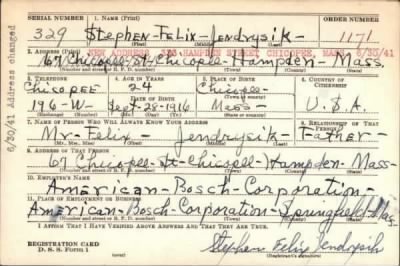 SERIAL NUMBER 1. NAME (Print) ORDER NUMBER
329 Stephen-Felix-Jendrysik- 1171
(First) (Middle) (Last)
NEW ADDRESS HAMPDEN STREET CHICOPEE, MASS. 6/30/41
2. ADDRESS (Print)
67 Chicopee-St-Chicopee-Hampden-Mass.
(Number and street or R. F. D. number) (Town) (County) (State)
3. TELEPHONE 4. AGE IN YEARS 5. PLACE OF BIRTH 6. COUNTRY OF CITIZENSHIP
Chicopee 24 Chicopee-
DATE OF BIRTH (Town or county)
196-W- Sept-25-1916 Mass- U.S.A.
(Exchange) (Number) (Mo.) (Day) (Yr.) (State or country)
7. NAME OF PERSON WHO WILL ALWAYS KNOW YOUR ADDRESS 8. RELATIONSHIP OF THAT PERSON
Mr-Felix-Jendrysik-Father-
(Mr., Mrs., Miss) (First) (Middle) (Last)
9. ADDRESS OF THAT PERSON
67 Chicopee-St-Chicopee-Hampden-Mass-
(Number and street or R. F. D. number) (Town) (County) (State)
10. EMPLOYER'S NAME
American-Bosch-Corporation-
11. PLACE OF EMPLOYMENT OR BUSINESS
American-Bosch-Corporation-Springfield-Mass
(Number and street or R. F. D. number) (Town) (County) (State)
I AFFIRM THAT I HAVE VERIFIED ABOVE ANSWERS AND THAT THEY ARE TRUE.
REGISTRATION CARD
D. S. S. Form 1
Stephen Felix Jendrysik
(Registrant's signature)
6/30/41 Address changed